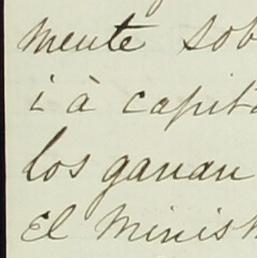 mente sob
i à capita
los ganan
El Minist